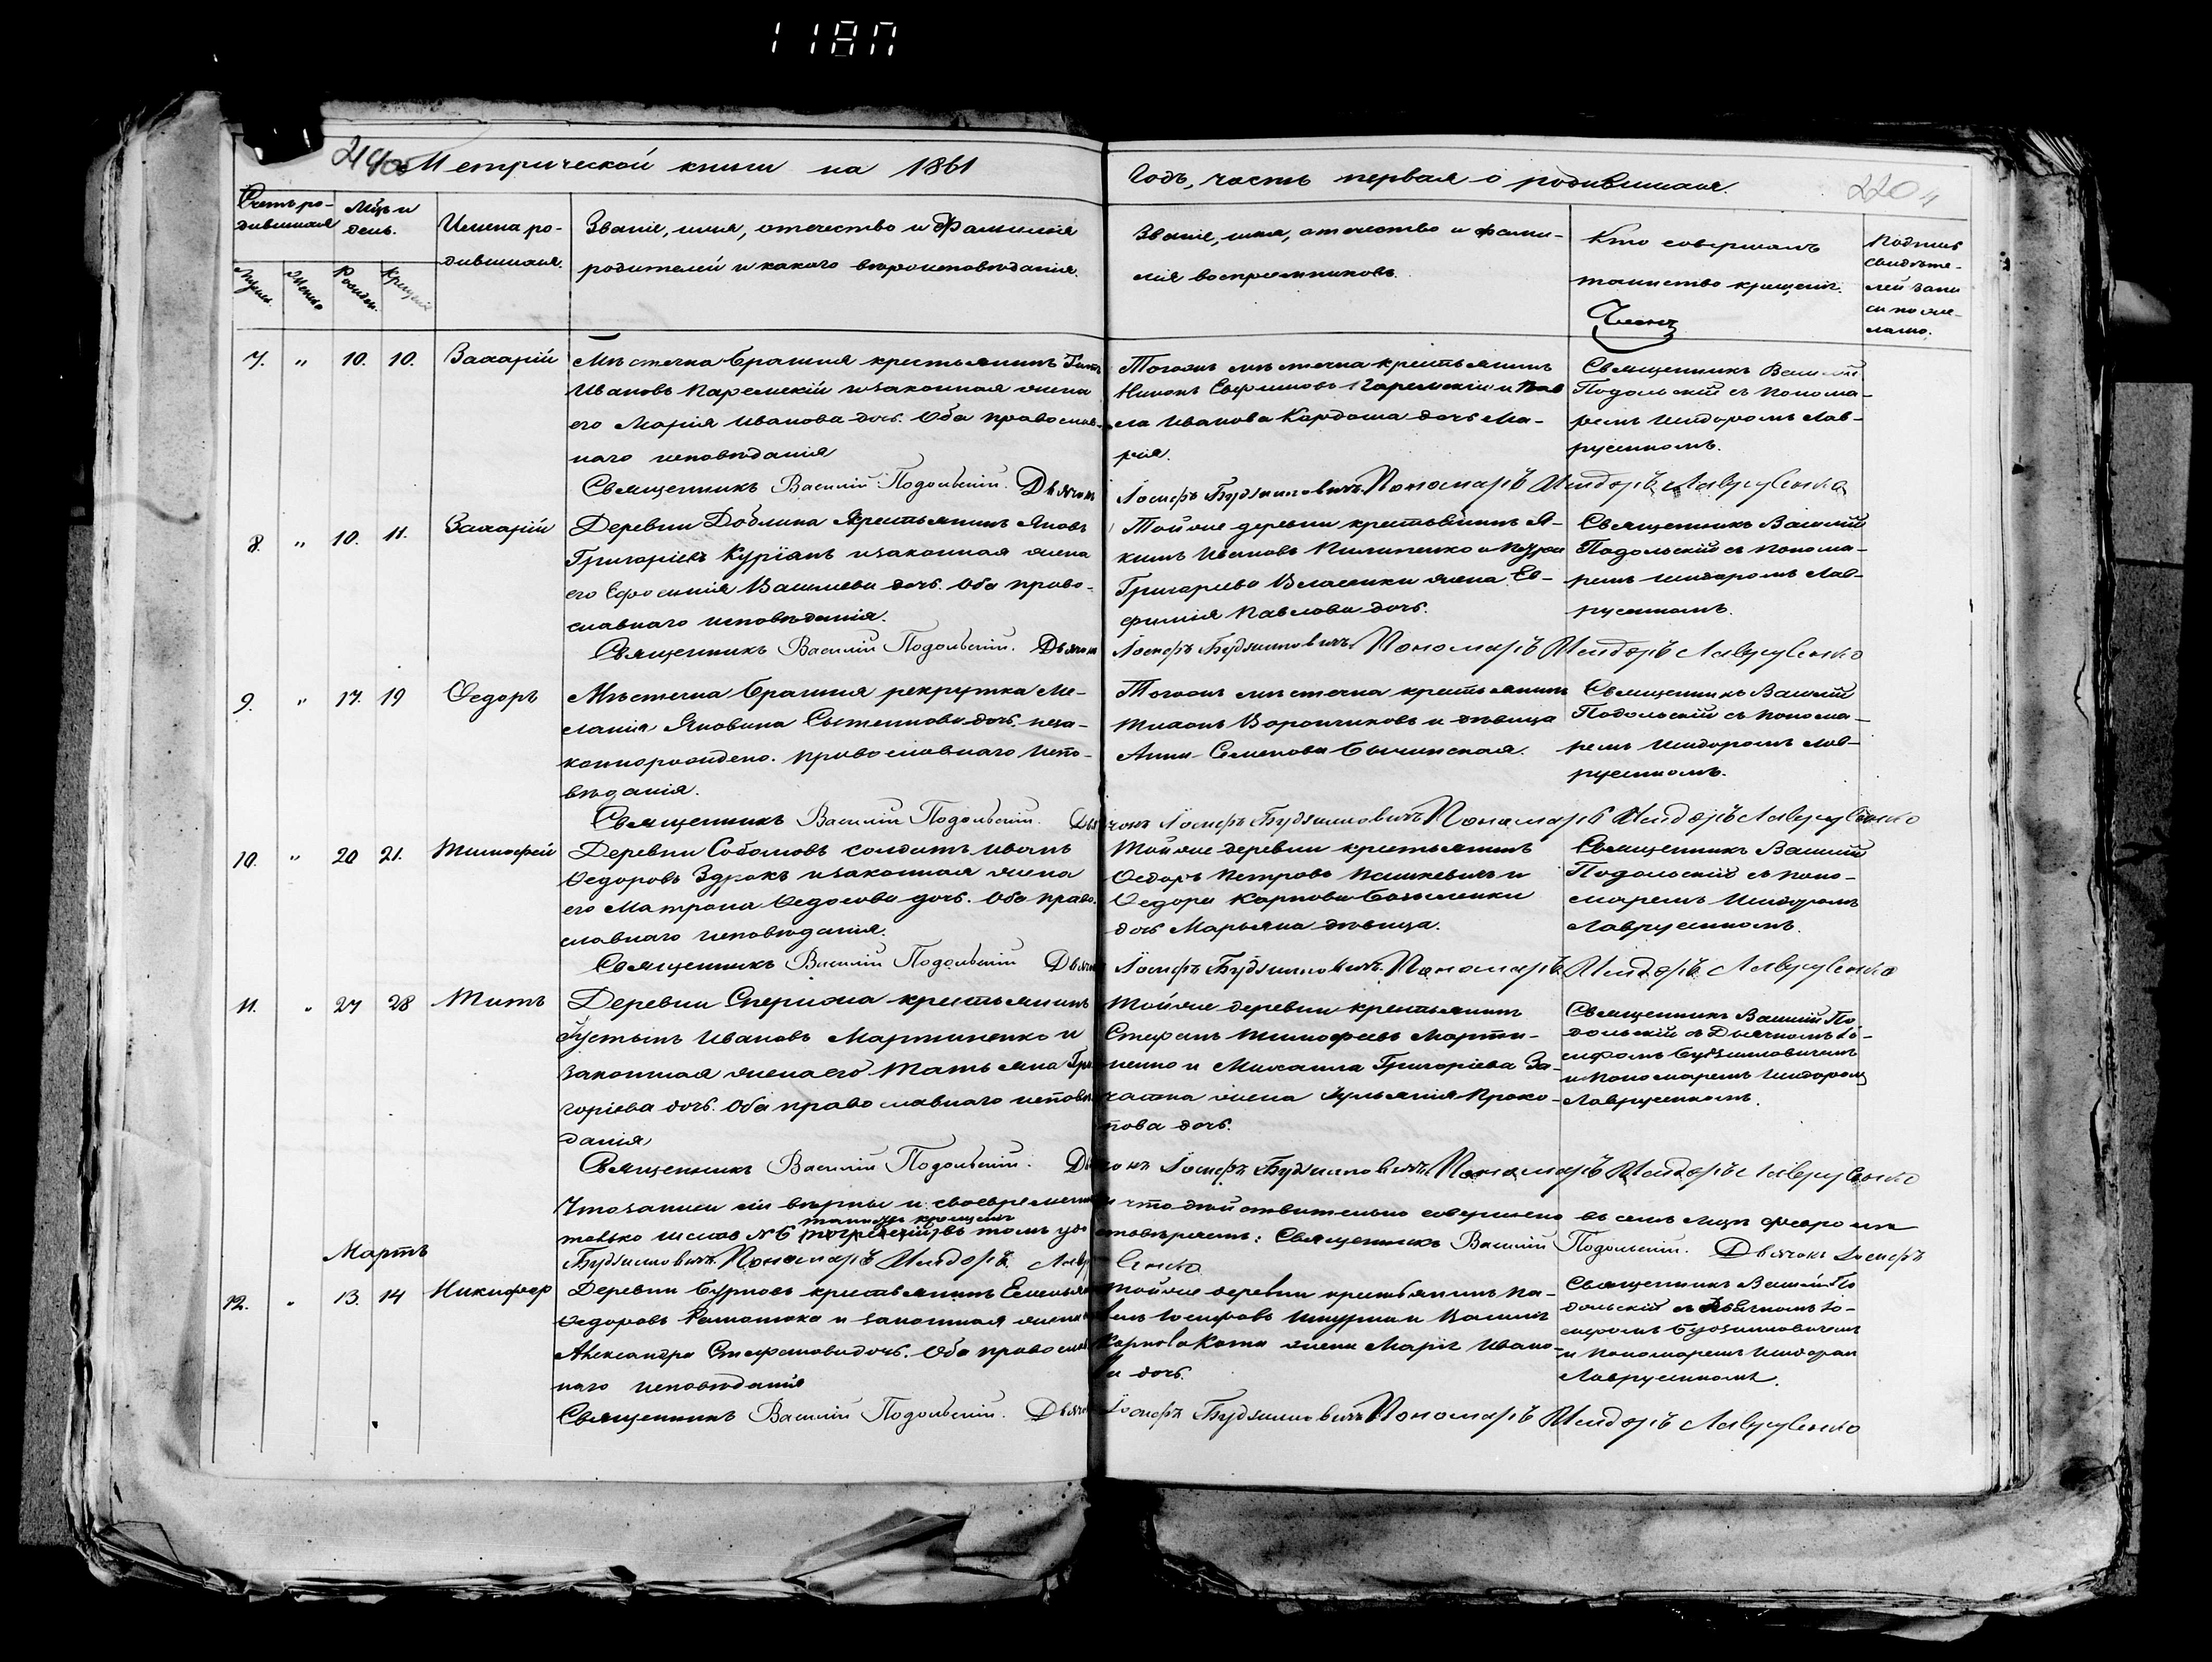 118П
Метрической книги на 1861
Годъ, часть первая о родившихся.
220
Счетъ ро-
дившихся
Мцъ и
день.
Имена ро-
дившихся.
Званіе, имя, отчество и фамилія
родителей и какого вѣроисповѣданія.
Званіе, имя, отчество и фами-
лія воспріемниковъ.
Кто совершалъ
таинство крещенія.
Подпись
свидѣте-
лей запи
си по же-
ланію.
7. " 10. 10. Захарій
Мѣстечка Брагиня крестьянинъ
Ивановъ Паремскій и законная жена
его Марія Иванова дочь. Оба православ-
наго исповѣданія
Тогожъ мѣстечка крестьянинъ
Никонъ Паремскій и Пав
ла Иванова Кордаша дочь Ма-
рія.
Священникъ Василій
Подольскій съ понома-
ремъ Исидоромъ Лав-
русенкомъ.
Священникъ Василій Подольскій. Дьячокъ Іосифъ Будзиловичъ Пономарь Исидоръ Лаврусенко
8. " 10. 11. Захарій
Деревни Доблина крестьянинъ Яковъ
Григоріевъ Куріанъ и законная жена
его Ефросинія Васильева дочь. Оба право-
славнаго исповѣданія.
Той же деревни крестьянинъ Я-
кимъ Ивановъ Пилипенко и
Григорьева жена Ев-
фимія Павлова дочь.
Священникъ Василій
Подольскій съ понома-
ремъ Исидоромъ Лав-
русенкомъ.
Священникъ Василій Подольскій. Дьячокъ Іосифъ Будзиловичъ Пономарь Исидоръ Лаврусенко
9. " 17. 19 Ѳедоръ
Мѣстечка Брагиня рекрутка Ме-
ланія Яковина дочь. неза-
коннорожденo. православнаго испо-
вѣданія.
Тогожъ мѣстечка крестьянинъ
Тихонъ Ворончиковъ и дѣвица
Анна Семенова
Священникъ Василій
Подольскій съ понома-
ремъ Исидоромъ Лав-
русенкомъ.
Священникъ Василій Подольскій. Дьячокъ Іосифъ Будзиловичъ Пономарь Исидоръ Лаврусенко
10. " 20 21. Тимофей
Деревни Соболовъ солдатъ Иванъ
Ѳедоровъ Здрокъ и законная жена
его Матрона Ѳедосова дочь. Оба право-
славнаго исповѣданія.
Той же деревни крестьянинъ
Ѳедоръ Петровъ Пашкевичъ и
Ѳедора Карпова
дочь Марьяна дѣвица.
Священникъ Василій
Подольскій съ поно-
маремъ Исидоромъ
Лаврусенкомъ.
Священникъ Василій Подольскій Дьячокъ Іосифъ Будзиловичъ Пономарь Исидоръ Лаврусенко
11. " 27 28 Титъ
Деревни Сперижа крестьянинъ
Іустынъ Ивановъ Мартиненко и
законная жена его Татьяна Гри
горіева дочь. Оба православнаго исповѣ
данія
Той же деревни крестьянинъ
Стефанъ Тимофеевъ Марти-
ненко и Михаила Григоріева За-
жена Ульянія Проко-
пова дочь.
Священникъ Василій По
дольскій съ Дьячкомъ Іо-
сифомъ Будзиловичемъ
и пономаремъ Исидоромъ
Лаврусенкомъ.
Священникъ Василій Подольскій. Дьячокъ Іосифъ Будзиловичъ Пономарь Исидоръ Лаврусенко
Что записи сіи вѣрны и своевременны и что дѣйствительно совершено въ семъ мцѣ февралѣ
таинствъ крещенія
только числомъ № 6 въ томъ удостовѣряемъ: Священникъ Василій Подольскій. Дьячокъ Іосифъ
Будзиловичъ Пономарь Исидоръ Лаврусенко
Мартъ
12. " 13. 14 Никифоръ
Деревни Бурковъ крестьянинъ Емельянъ
Ѳедоровъ и законная жена
Александра Стефанова дочь. Оба православ
наго исповѣданія
Той же деревни крестьянинъ Па-
велъ Іосифовъ и Василія
Карпова Кота жена Марія Ивано-
ва дочь.
Священникъ Василій По
дольскій съ Дьячкомъ Іо-
сифомъ Будзиловичемъ
и пономаремъ Исидоромъ
Лаврусенкомъ.
Священникъ Василій Подольскій. Дьячокъ Іосифъ Будзиловичъ Пономарь Исидоръ Лаврусенко